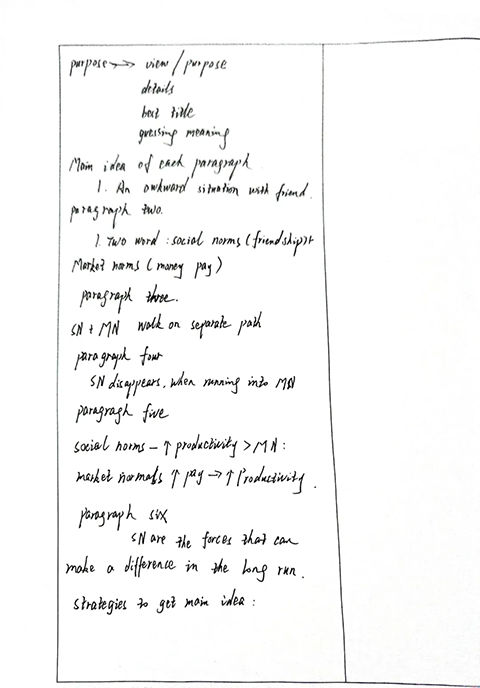 purpose → view / purpose
details
best title
guessing meaning
Main idea of each paragraph
1. An awkward situation with friend.
paragraph two.
1. Two word : social norms (friendship) +
Market norms (money pay)
paragraph three.
SN + MN walk on separate path
paragraph four
SN disappears, when running into MN
paragragh five
social norms - ↑ productivity > MN :
market norms ↑ pay → ↑ Productivity.
paragraph six
SN are the forces that can
make a difference in the long run.
strategies to get main idea :